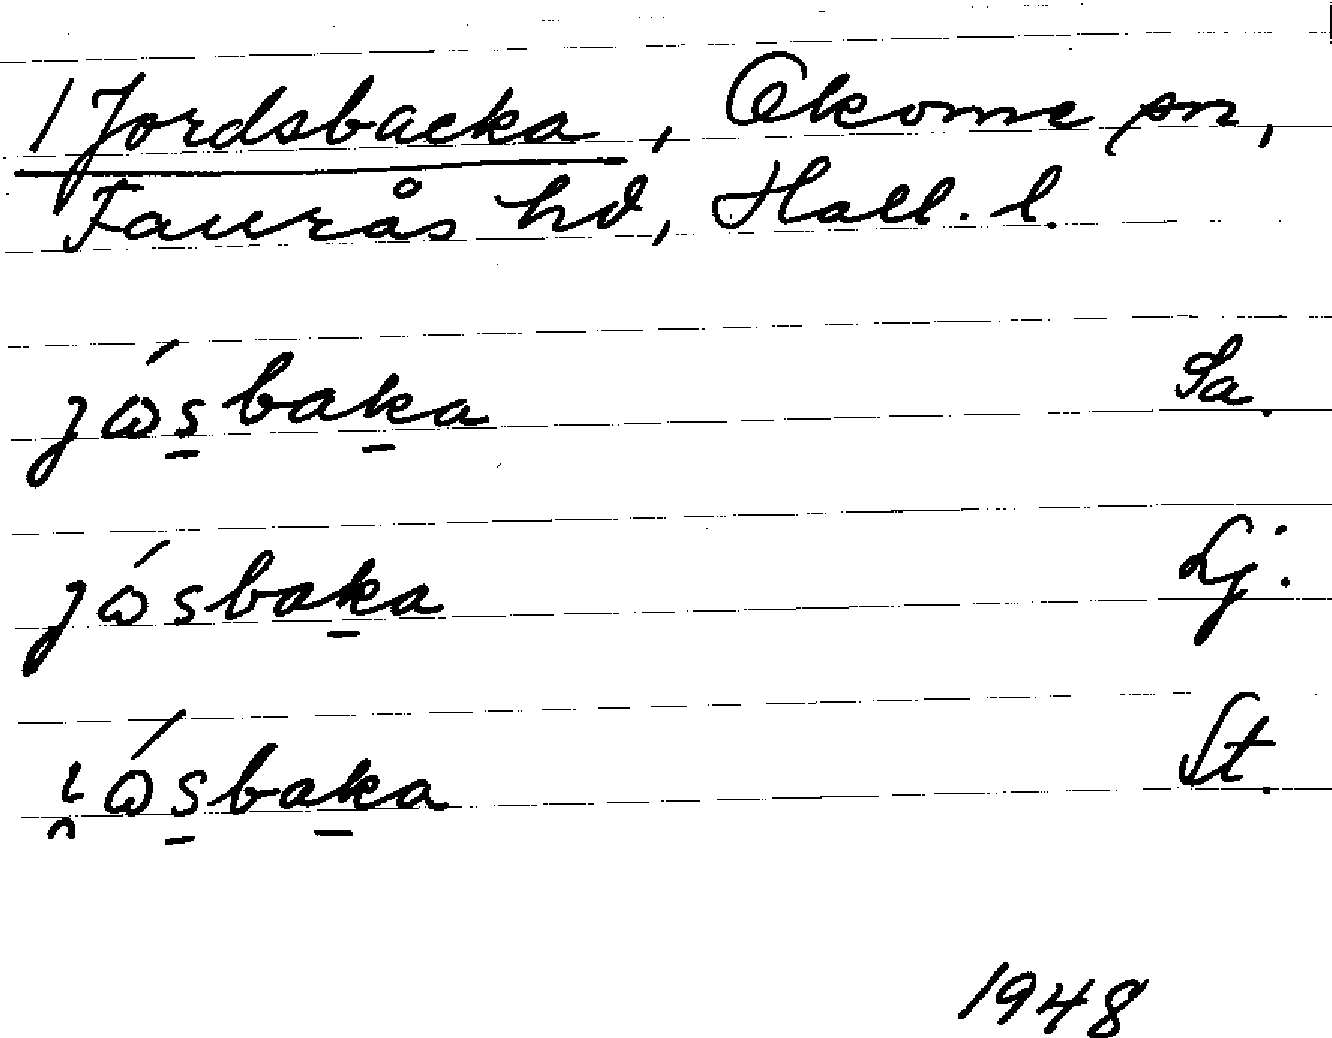 /Jordsbacka, Okome sn,
Faurås hd, Hall. l.
jɷ́s̱baḵa Sa.
jɷ́sbaḵa Lj.
i̯ɷ́s̱baḵa St.
1948